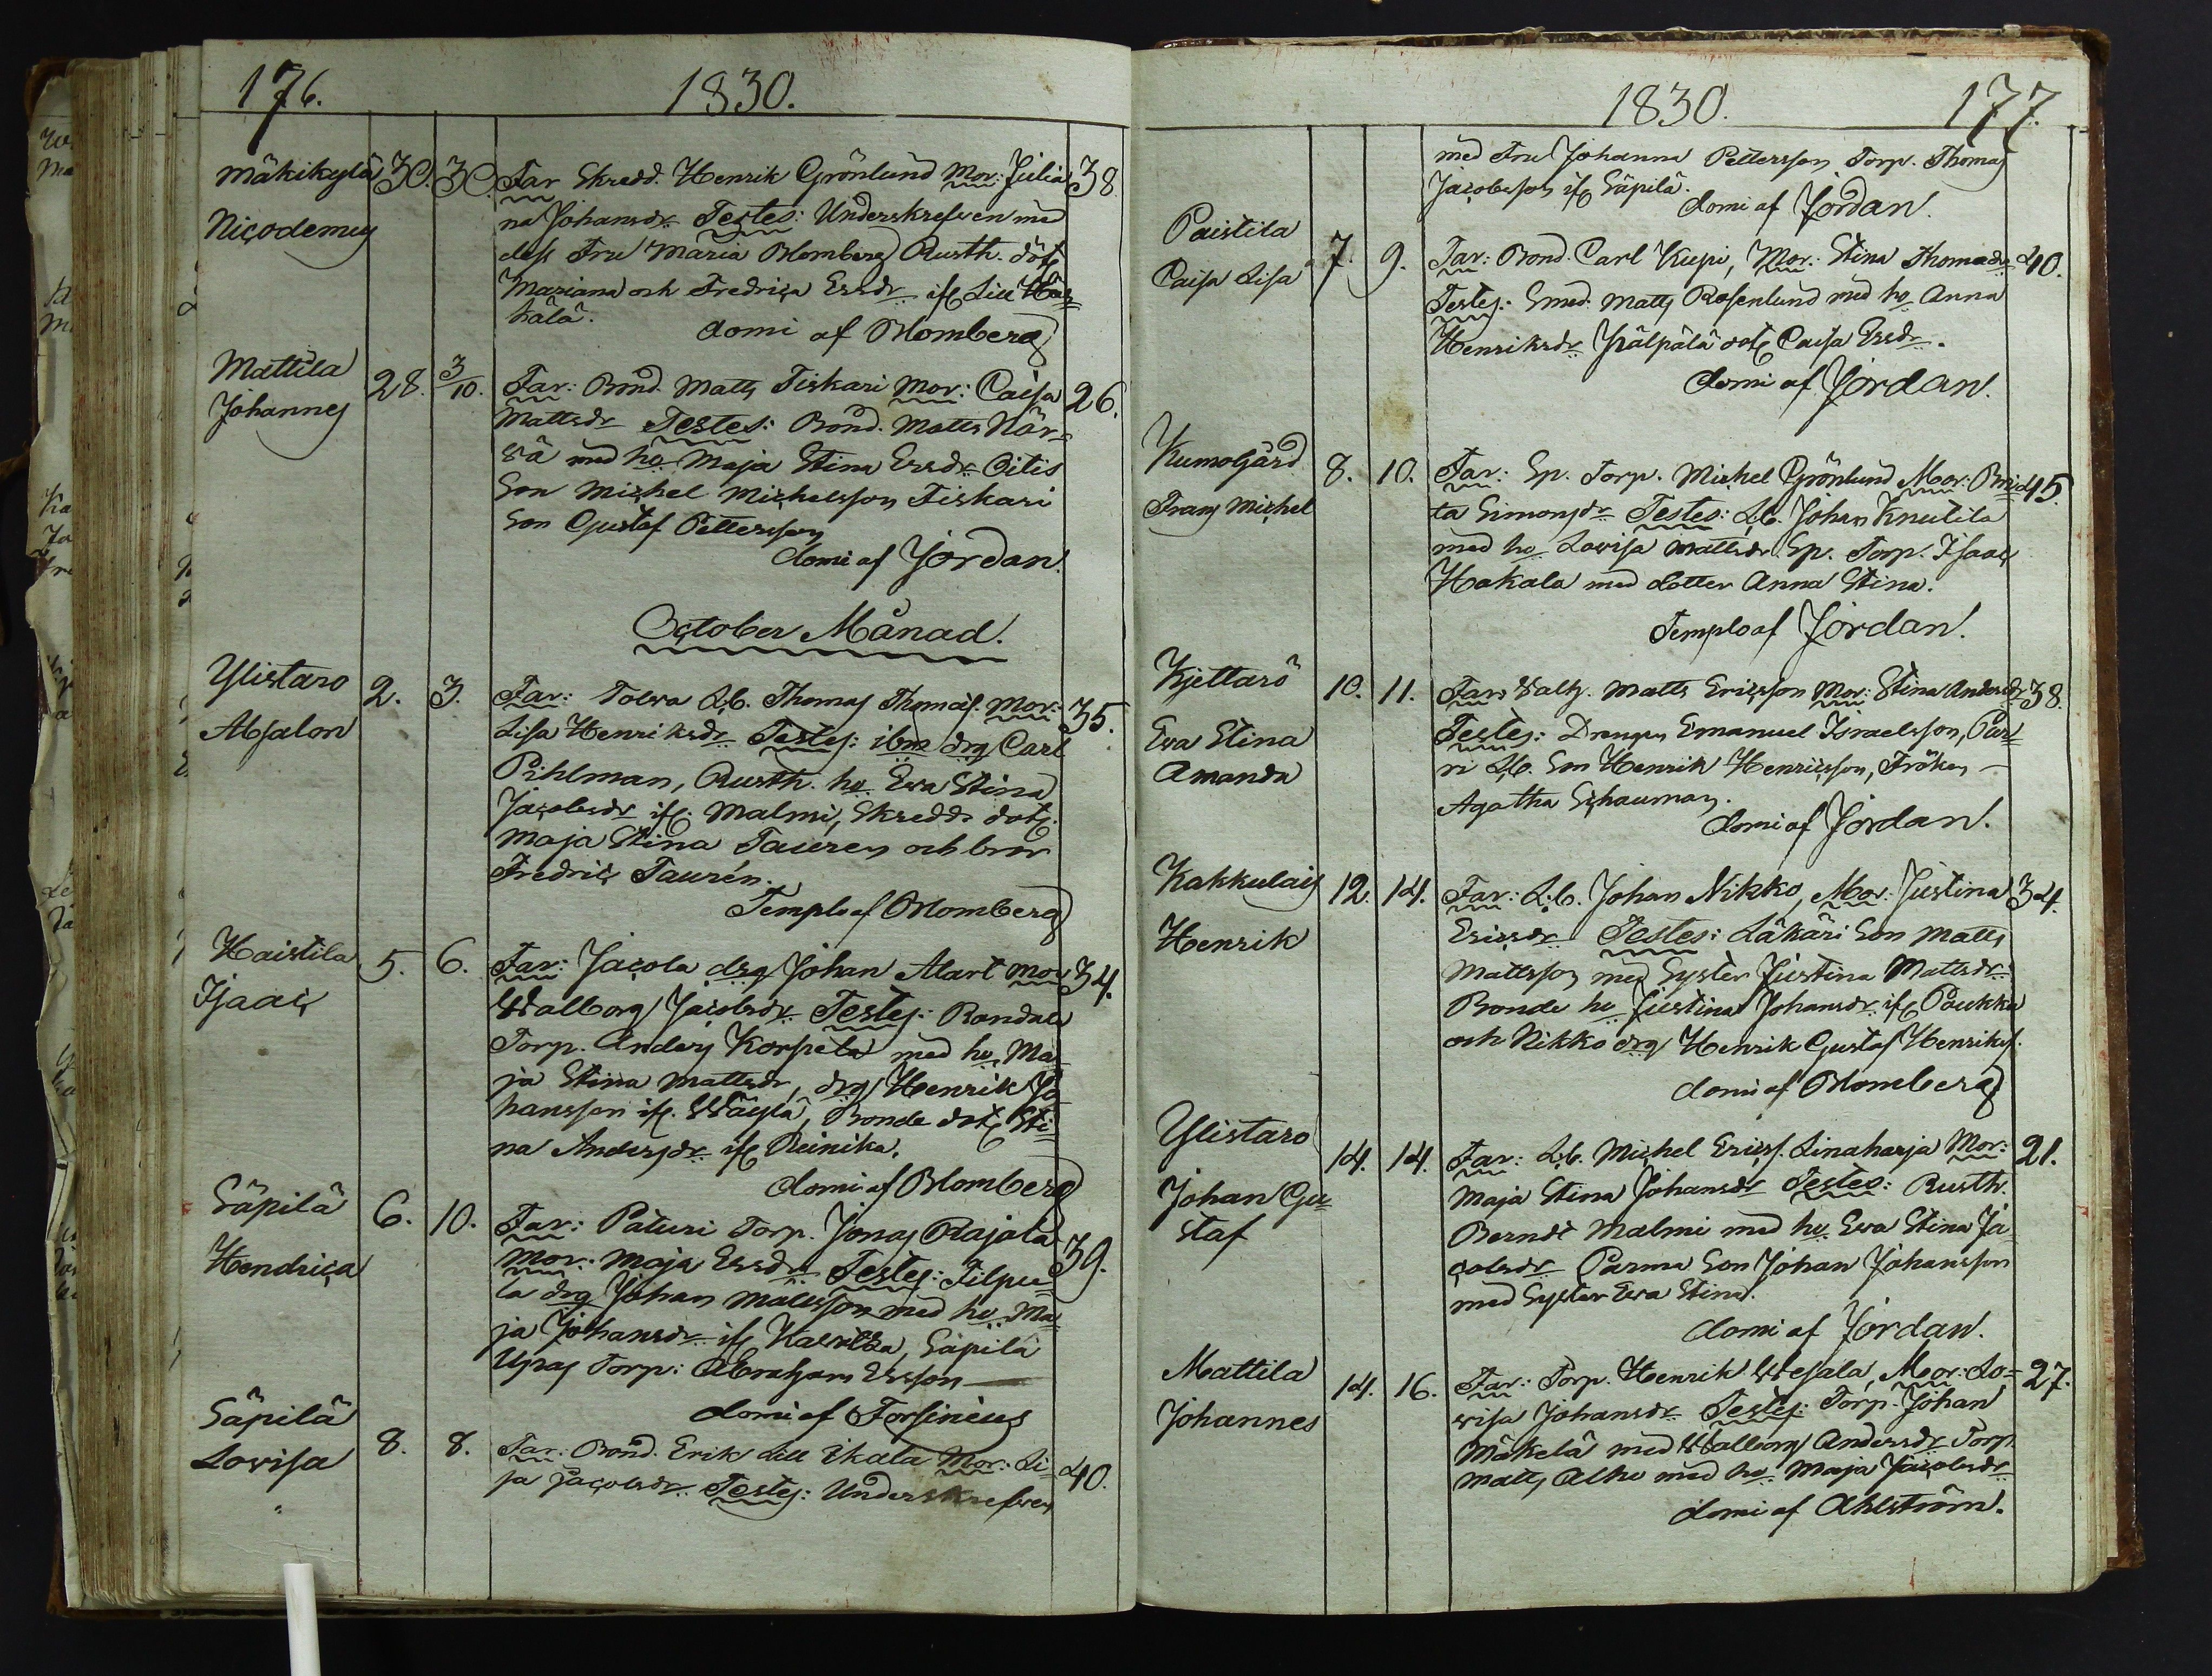 176.
1830.
Mäkikylä 30. 30. Far Skredd. Henrik Grönlund Mor: Julia 38.
Nicodemus
na Johansdr Testes: Underskrefwen med
dess Fru Maria Blomberg Rusth. döt
Mariana och Fredrica Ersdr ifr. Lill
kälä.
domi af Blomberg
Mattila 28. 3/10. Far: Bond. Matts Tiskari Mor: Caisa 26.
Johannes
Mattsdr Testes: Bond. Matts När=
wä med ho Maja Stina Ersdr Oitis
Son Michel Michelsson Tiskari
Son Gustaf Pettersson
domi af Jordan.
October Månad.
Ylistaro 2. 3. Far: Tolwa Lb. Thomas Thomæs. Mor: 35.
Absalon
Lisa Henriksdr Testes: ibm drg Carl
Pihlman, Rusth. ho Ewa Stina
Jacobsdr ifr. Malmi, Skredds dott.
Maja Stina Tauren och bror
Fredric Taurén.
Templo af Blomberg
Haistila 5. 6. Far: Jacola drg Johan Alart Mor 34.
Isaac
Walborg Jacobsdr Testes: Bondala
Torp. Anders Korpela med ho Ma=
ja Stina Mattsdr, drg Henrik Jo
hansson ifr. Wäylä, Bonde dott Sti=
na Andersdr ifr Reinika.
domi af Blomberg
Säpilä 6. 10. Far: Paturi Torp. Jonas Rajala 39.
Hendrica
Mor: Maja Ersdr Testes: Filpu=
la drg Johan Mattsson med ho Ma=
ja Johansdr ifr Kawitza, Säpilä
Torp: Abraham Ersson
domi af Forsinius
Säpilä 8. 8. Far: Bond. Erik Lill Ikala Mor: Li= 40.
Lovisa
sa Jacobsdr Testes: Underskrefwen
1830.
177.
med Fru Johanna Pettersson Torp. Thomas
Jacobsson ifr Säpilä.
domi af Jordan.
Paistila 7. 9. Far: Bond. Carl Kupi, Mor: Stina Thomadr 40.
Caisa Lisa
Testes: Smed. Matts Rosenlund med ho Anna
Henriksdr Frälpälä dott Caisa Ersdr.
domi af Jordan.
Kumogård 8. 10. Far: Sp. Torp. Michel Grönlund Mor: Bri= 45.
Frans Michel
ta Simonsdr Testes: Lb. Johan Knutila
med ho Lovisa Mattsdr Sp. Torp. Isaac
Hakala med dotter Anna Stina.
Templo af Jordan.
Kjettarö 10. 11. Far: Waltz. Matts Ericsson Mor: Stina Andersdr 38.
Ewa Stina
Amanda
Testes: Drengen Emanuel Israelsson, Pur=
ri Lb. Son Henrik Henricsson, Fröken
Agatha Schauman.
domi af Jordan.
Kakkulais 12. 14. Far: Lb. Johan Nikko, Mor: Justina 34.
Henrik
Ericsdr Testes: Läkäri Son Matts
Mattsson med Syster Justina Mattsdr
Bonde ho Justina Johansdr ifr Paukka
och Nikko drg Henrik Gustaf Henriks.
domi af Blomberg
Ylistaro 14. 14. Far: Lb. Michel Ericss. Linaharja Mor: 21.
Johan Gu=
staf
Maja Stina Johansdr Testes: Rusth.
Berndt Malmi med ho Ewa Stina Ja
cobsdr Parma Son Johan Johansson
med Syster Ewa Stina.
domi af Jordan.
Mattila 14. 16. Far: Torp. Henrik Wesala, Mor: Lo= 27.
Johannes
wisa Johansdr Testes: Torp. Johan
Mäkelä med Walborg Andersdr Torp.
Matts Alho med ho Maja Jacobsdr
domi af Ahlström.